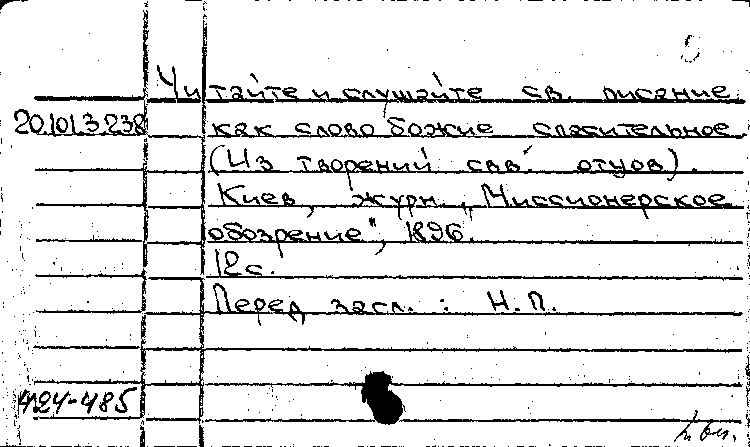 Читайте и слушайте св. писание
20.101.3.238 как слово божие спасительное
(Из творений свв. отцов).
Киев, журн. „Миссионерское
обозрение", 1896.
12с.
Перед загл.: Н.П.
424-485